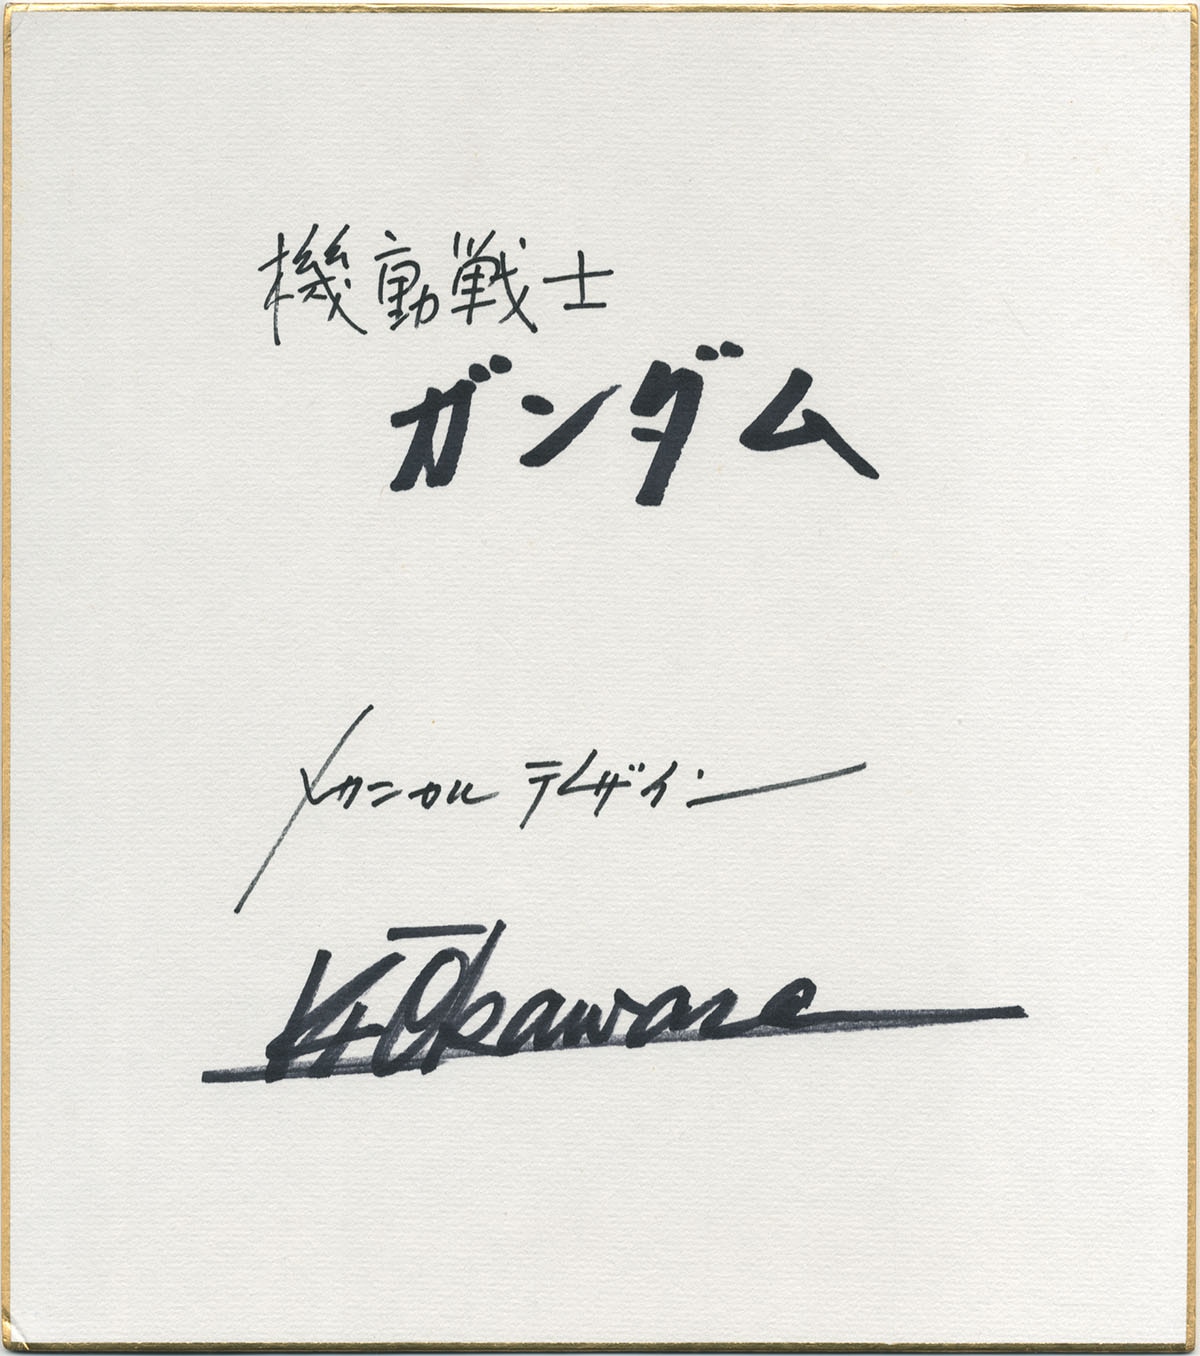 機動戦士
ガンダム
メカニカルデザイン
K.Ōkawara